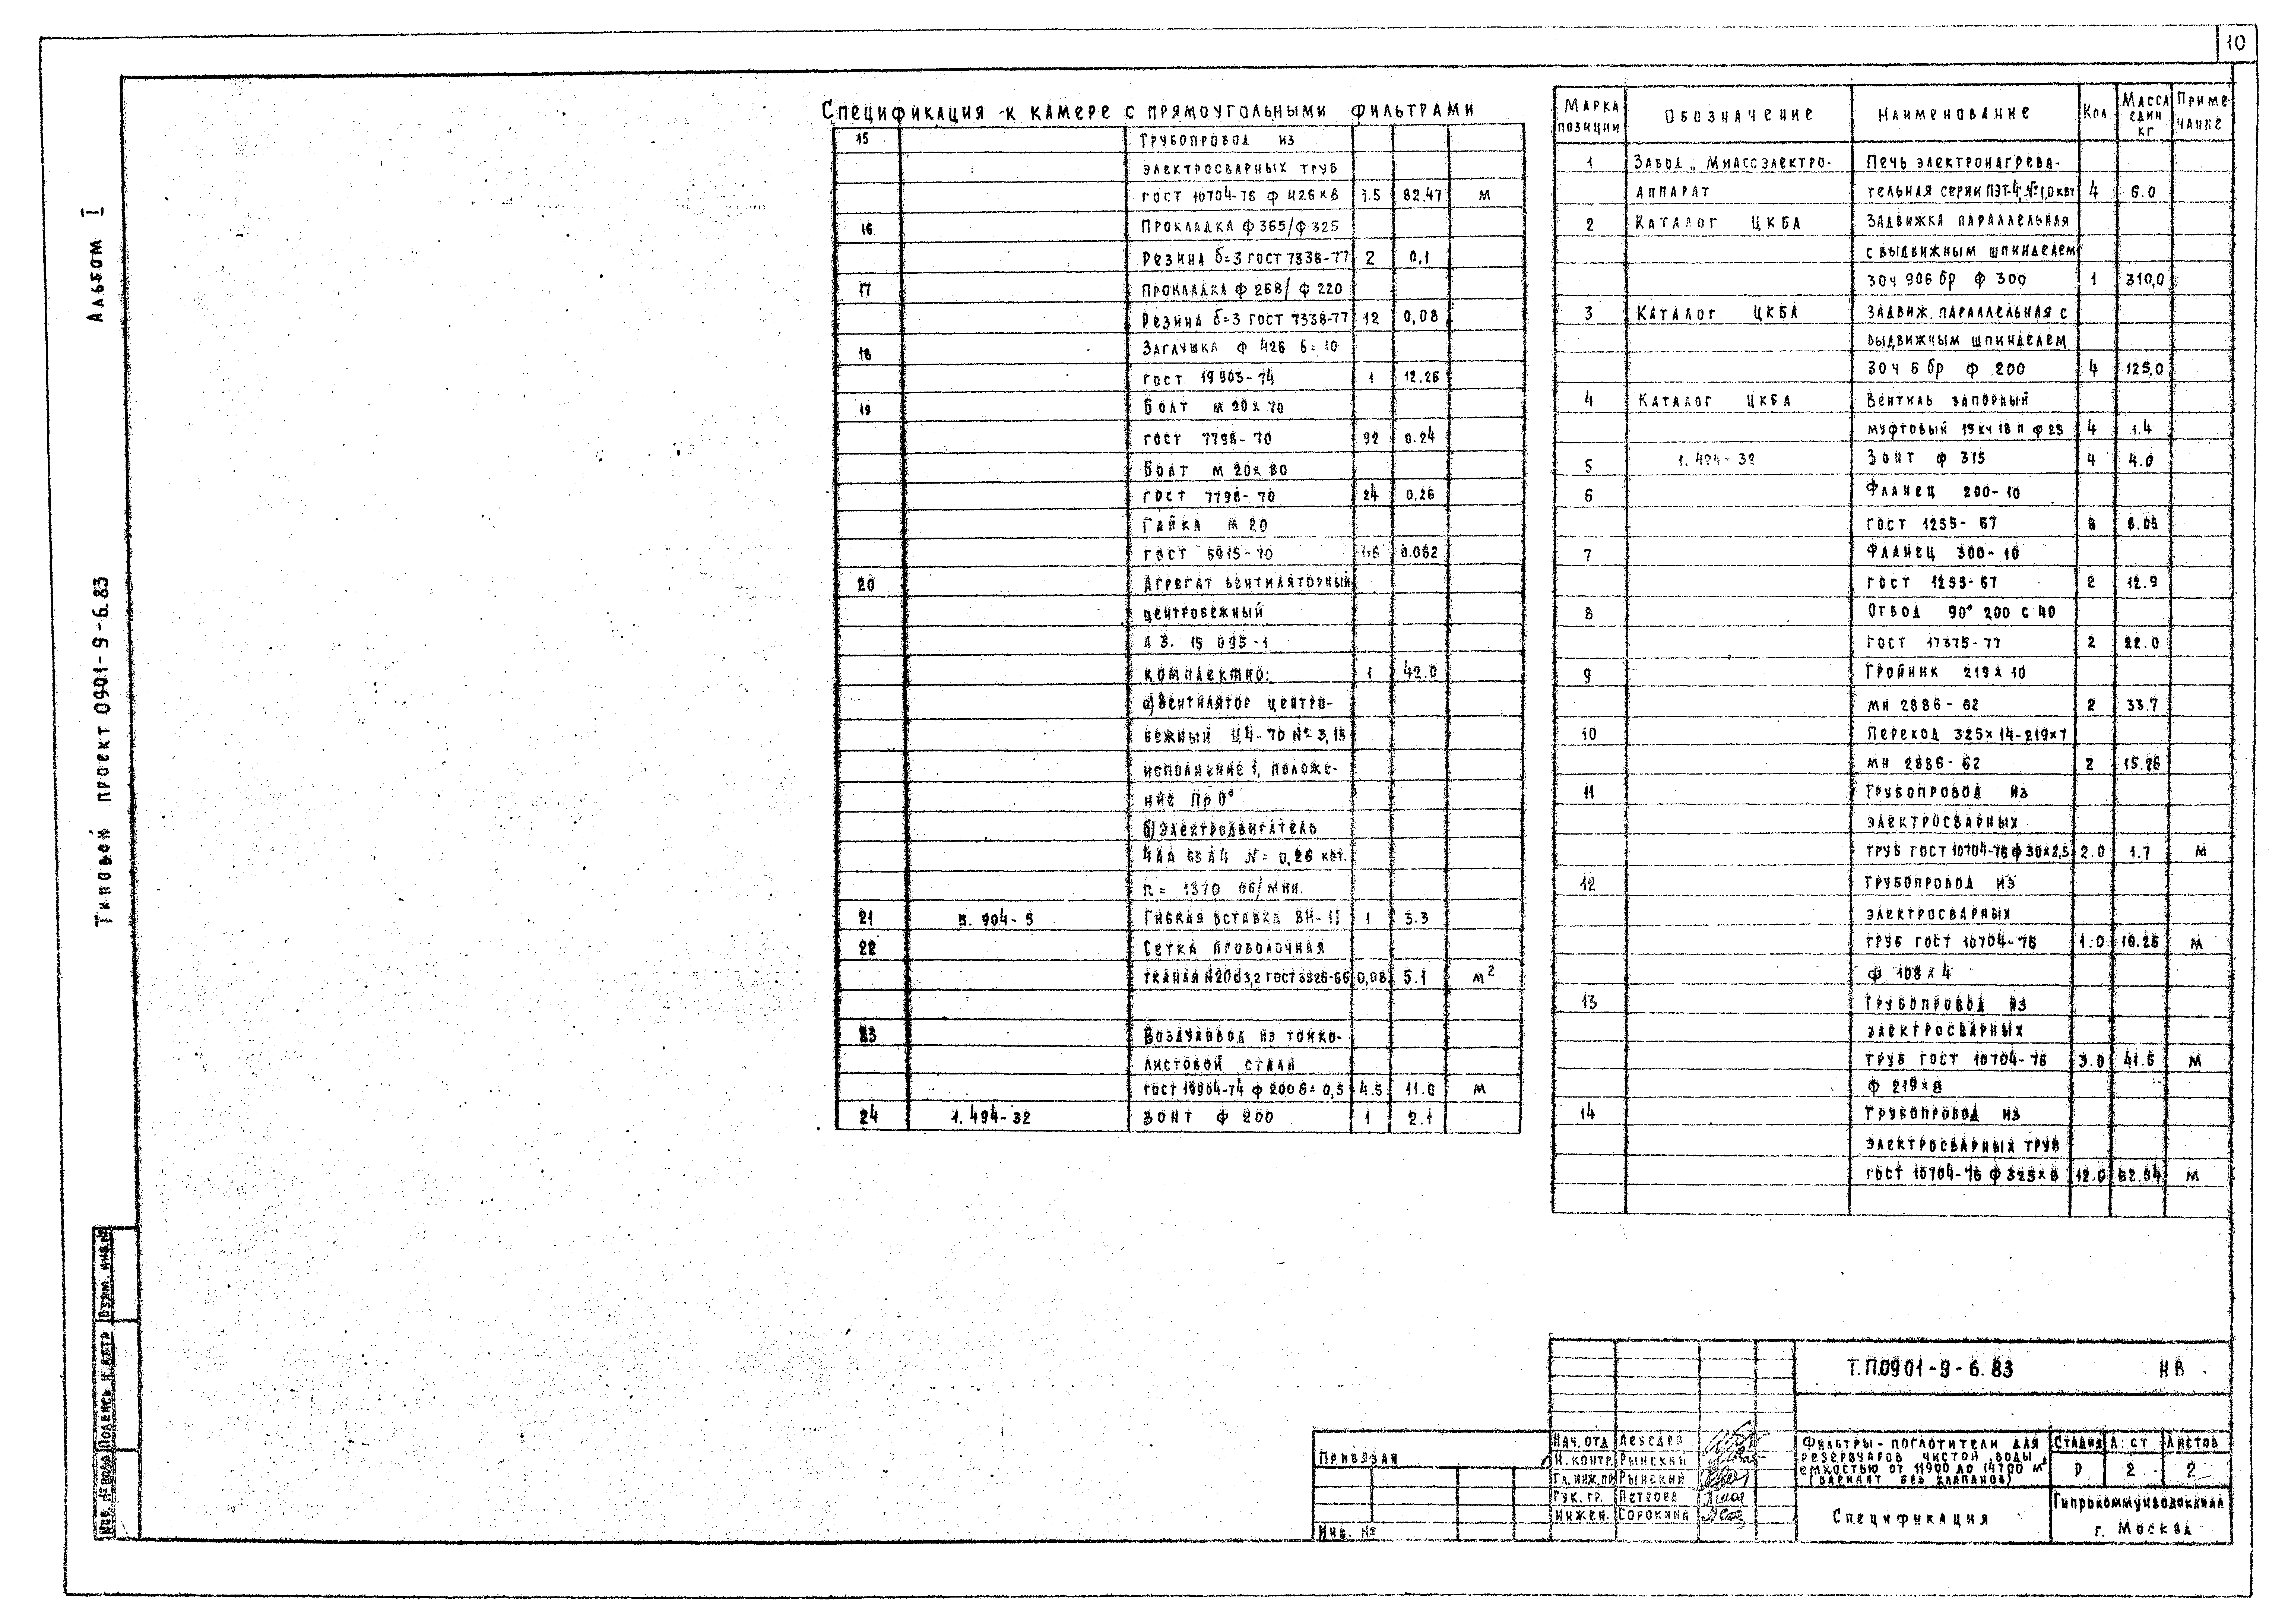 10
Альбом I
Типовой проект 0901-9-6.83
Спецификация к камере с прямоугольными фильтрами
Марка позиции Обозначение Наименование Кол. Масса един кг Примечание
1 Завод „Миассэлектро- Печь электронагрева-
аппарат тельная серии ПЭТ-4, N=1,0 квт 4 6.0
2 Каталог ЦКБА Задвижка параллельная
с выдвижным шпинделем
30ч 906 бр ф 300 1 310,0
3 Каталог ЦКБА Задвиж. параллельная с
выдвижным шпинделем
30ч 6 бр ф 200 4 125,0
4 Каталог ЦКБА Вентиль запорный
муфтовый 15 кч 18 п ф 25 4 1.4
5 1.494-32 Зонт ф 315 4 4.0
6 Фланец 200-10
ГОСТ 1255-67 8 8.05
7 Фланец 300-10
ГОСТ 1255-67 2 12.9
8 Отвод 90° 200 с 40
ГОСТ 17375-77 2 22.0
9 Тройник 219х10
МН 2886-62 2 33.7
10 Переход 325х14-219х7
МН 2886-62 2 15.26
11 Трубопровод из
электросварных
труб ГОСТ 10704-76 ф 30х2,5 2.0 1.7 м
12 Трубопровод из
электросварных
труб ГОСТ 10704-76 1.0 10.26 м
ф 108х4
13 Трубопровод из
электросварных
труб ГОСТ 10704-76 3.0 41.6 м
ф 219х8
14 Трубопровод из
электросварных труб
ГОСТ 10704-76 ф 325х8 12.0 62.54 м
15 Трубопровод из
электросварных труб
ГОСТ 10704-76 ф 426х8 1.5 82.47 м
16 Прокладка ф 365/ф 325
Резина б=3 ГОСТ 7338-77 2 0,1
17 Прокладка ф 268/ф 220
Резина б=3 ГОСТ 7338-77 12 0,08
18 Заглушка ф 426 б=10
ГОСТ 19903-74 1 12.26
19 Болт м 20х70
ГОСТ 7798-70 92 0.24
Болт м 20х80
ГОСТ 7798-70 24 0,26
Гайка м 20
ГОСТ 5915-70 116 0.062
20 Агрегат вентиляторный
центробежный
А 3. 15 095-1
комплектно: 1 42.0
а) Вентилятор центро-
бежный Ц4-70 № 3,15
исполнение 1, положе-
ние Пр 0°
б) Электродвигатель
4АА 63 А4 N= 0,26 квт.
n= 1370 об/мин.
21 5.904-5 Гибкая вставка ВН-11 1 3.3
22 Сетка проволочная
тканая N20 d3,2 ГОСТ 3826-66 0,08 5.1 м²
23 Воздуховод из тонко-
листовой стали
ГОСТ 19904-74 ф 200 б=0,5 4.5 11.0 м
24 1.494-32 Зонт ф 200 1 2.1
Инв. № подл. Подпись и дата Взам. инв. №
Привязан
Инв. №
Нач. отд Лебедев
Н. контр Рынский
Гл. инж. пр Рынский
Рук. гр. Петрова
Инжен. Сорокина
Т.П.0901-9-6.83 НВ
Фильтры-поглотители для
резервуаров чистой воды
емкостью от 11900 до 14700 м³
(вариант без клапанов)
Стадия Лист Листов
Р 2 2
Спецификация
Гипрокоммунводоканал
г. Москва